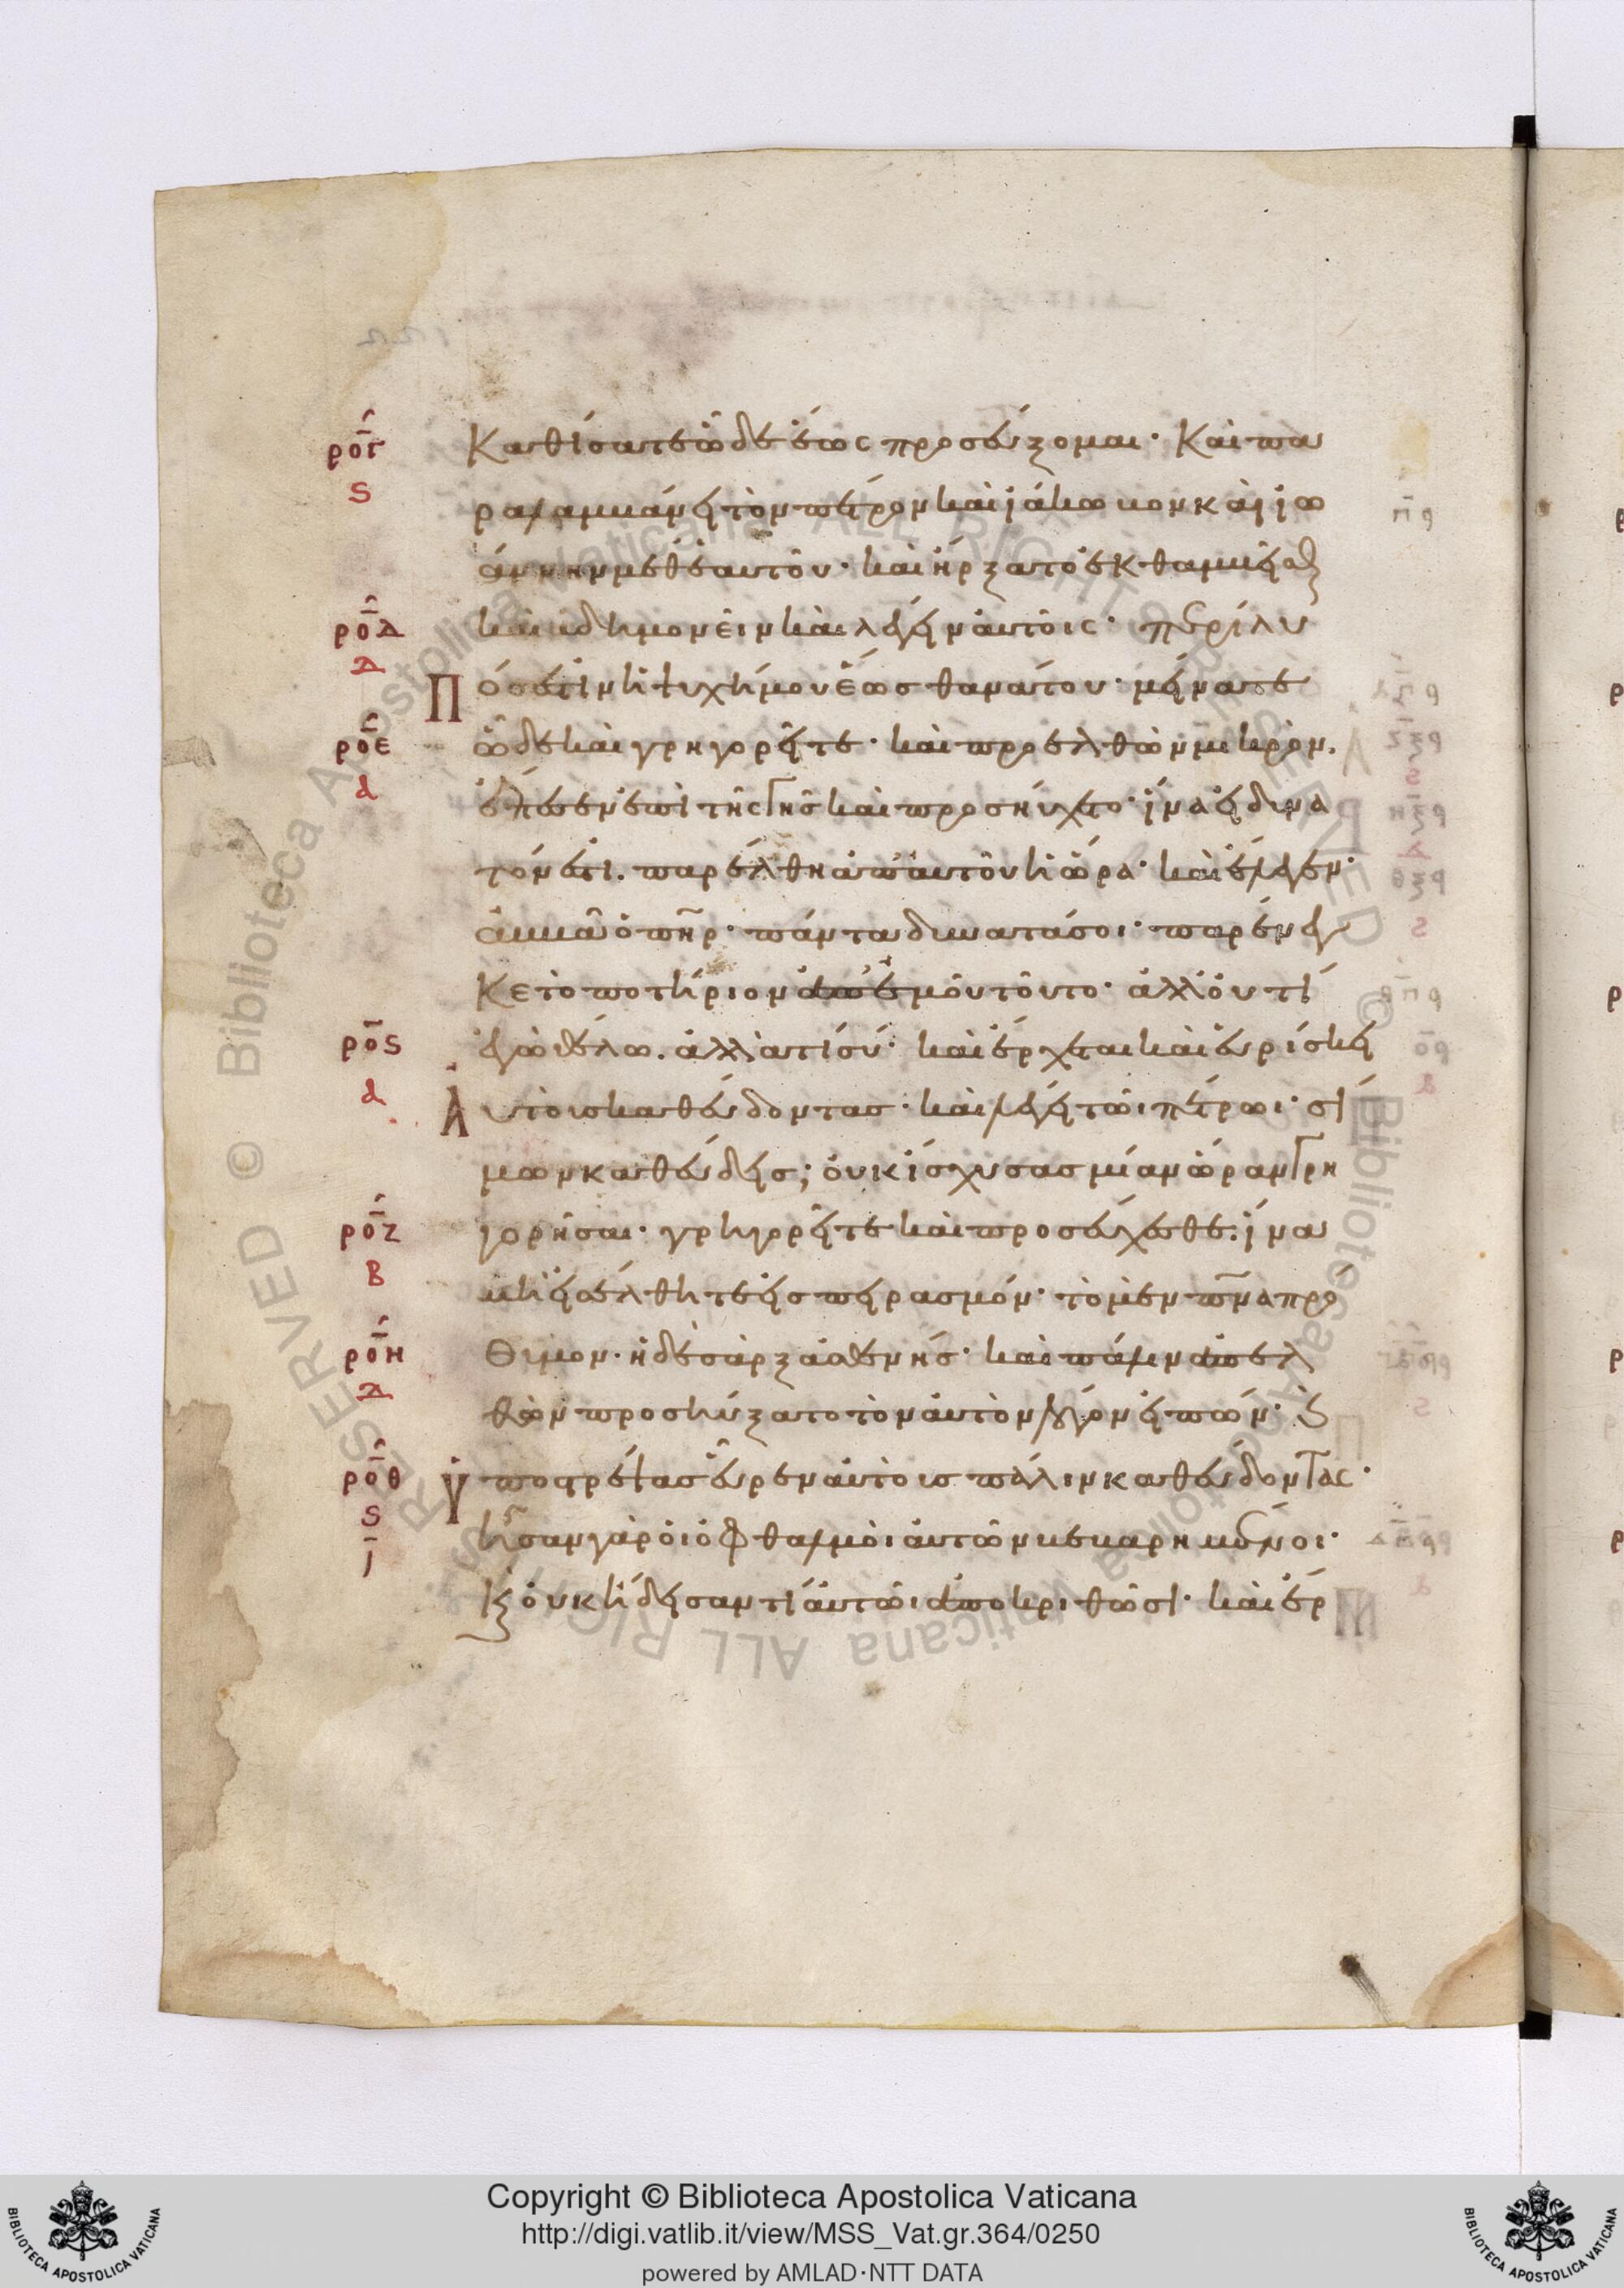 ρο̄γ Καθίσατε ὧδε ἕως προσεύξομαι· Και πα
ς ραλαμβάνει τὸν πέτρον και ϊάκωβον και ϊω
άννην μεθ ἑαυτοῦ· και ἤρξατο ἐκθαμβεῖσθ
ρο̄δ και ἀδημονεῖν και λέγειν αὐτοῖς· περίλυ
δ
Π ός ἐστιν ἡ ψυχή μου ἕως θανάτου· μείνατε
ρο̄ε ὧδε και γρηγορεῖτε· και προελθὼν μικρὸν.
α ἔπεσεν ἐπὶ τῆς γῆς και προσηύχετο· ἵνα εἰ δυνα
τόν ἐστι. παρέλθη ἀπ αὐτοῦ ἡ ὥρα· και ἔλεγεν·
ἀββᾶ ὁ πη̄ρ· πάντα δυνατά σοι· παρένεγ
κε τὸ ποτήριον ἀπ ἐμοῦ τοῦτο· ἀλλ ού τί
ρο̄ς ἐγὼ θέλω. ἀλλὰ τί σύ· και ἔρχεται και εὑρίσκει
α Αυτοὺς καθεύδοντας· και λέγει τῶι πέτρωι· σί
μων καθεύδεις; οὐκ ἴσχυσας μίαν ὥραν γρη
ρο̄ζ γορῆσαι· γρηγορεῖτε και προσεύχεσθε· ἵνα
β μὴ εἰσέλθητε εἰς πειρασμόν· τὸ μὲν πν̄α πρό
ρο̄η θυμον· ἡ δὲ σὰρξ ἀσθενής· και πάλιν ἀπελ
δ θὼν προσηύξατο τὸν αὐτὸν λόγον εἰπών· ϗ
ρο̄θ Ὑποστρέψας εὗρεν αὐτοὺς πάλιν καθεύδοντας·
ς ἦσαν γὰρ οἱ ὀφθαλμοὶ αὐτῶν βεβαρημένοι·
ῑ ϗ οὐκ ἤδεισαν τί αὐτῶι ἀποκριθῶσι· και ἔρ
Copyright © Biblioteca Apostolica Vaticana
http://digi.vatlib.it/view/MSS_Vat.gr.364/0250
powered by AMLAD·NTT DATA
BIBLIOTECA APOSTOLICA VATICANA
BIBLIOTECA APOSTOLICA VATICANA